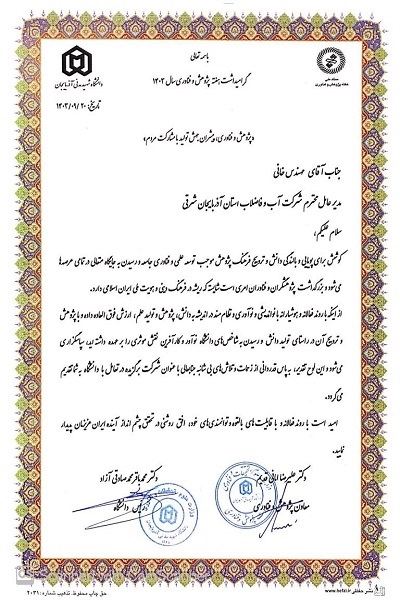 باسمه تعالی
گرامیداشت هفته پژوهش و فناوری سال ۱۴۰۳
ستاد ملی
هفته پژوهش و فناوری
دانشگاه شهید مدنی آذربایجان
تاریخ: ۱۴۰۳/۰۹/۲۰
«پژوهش و فناوری، پیشران جهش تولید با مشارکت مردم»
جناب آقای مهندس خانی
مدیر عامل محترم شرکت آب و فاضلاب استان آذربایجان شرقی
سلام علیکم،
کوشش برای پویایی و بالندگی دانش و ترویج فرهنگ پژوهش موجب توسعه علمی و فناوری جامعه و رسیدن به جایگاه متعالی در تمامی عرصه‌ها
می‌شود و بزرگداشت پژوهشگران و فناوران امری است شایسته که ریشه در فرهنگ دینی و هویت ملی ایران اسلامی دارد.
از اینکه با روند فعالانه و هوشیارانه با نواندیشی و نوآوری و نظام‌مند در اندیشه به دانش، پژوهش و تولید علم، ارزش فوق العاده داده و با پژوهش
و ترویج آن در راستای تولید دانش و رسیدن به شاخص‌های دانشگاه نوآور و کارآفرین نقش موثری را بر عهده داشته اید، سپاسگزاری
می‌شود و این لوح تقدیر، به پاس قدردانی از زحمات و تلاش‌های بی شائبه جنابعالی با عنوان شرکت برگزیده در تعامل با دانشگاه به شما تقدیم
می گردد.
امید است با روند فعالانه و با قابلیت های بالقوه و توانمندی‌های خود، افق روشنی در تحقق چشم انداز آینده ایران عزیزمان پدیدار
نمایید.
دکتر علیرضا امانی قدیم
معاون پژوهش و فناوری
دکتر محمدباقر محمدصادقی آزاد
رئیس دانشگاه
نشر حفظی www.hefzi.ir
حق چاپ محفوظ. تذهیب شماره: ۲۰۳۱